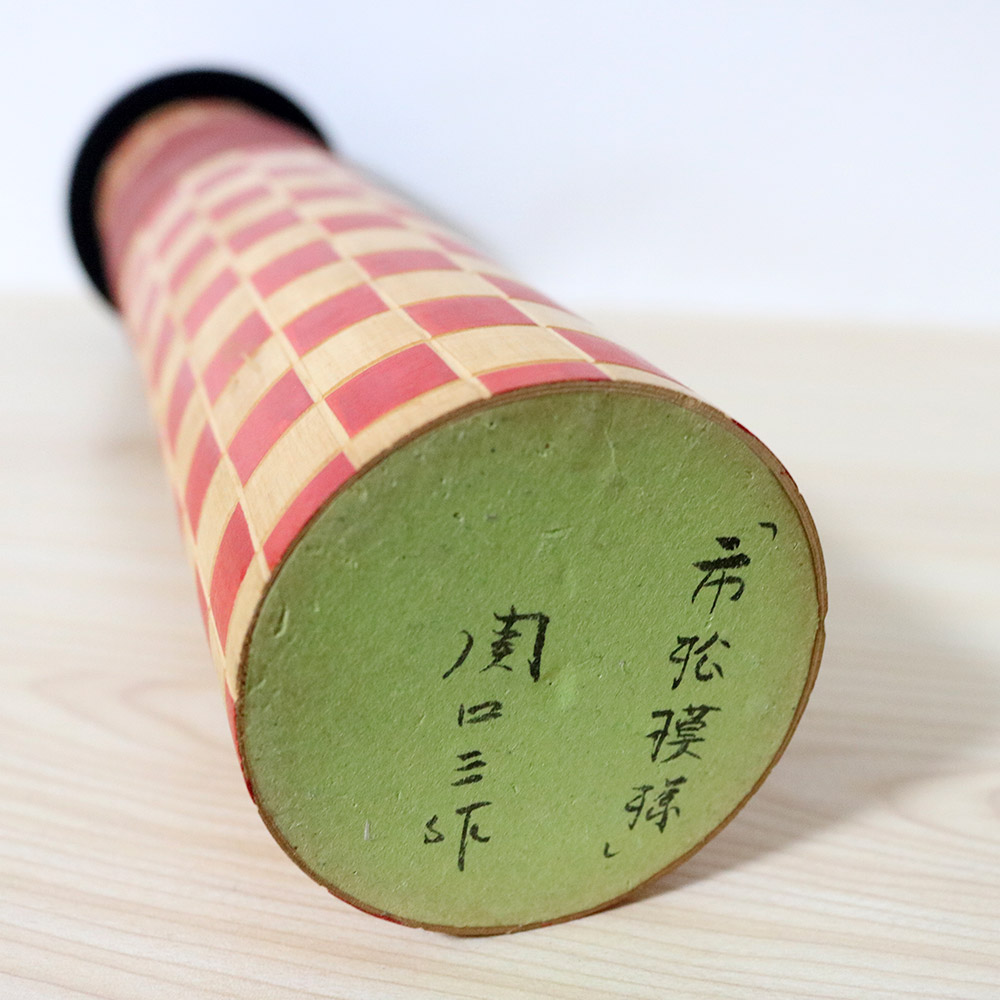 「市松模様」
関口三作